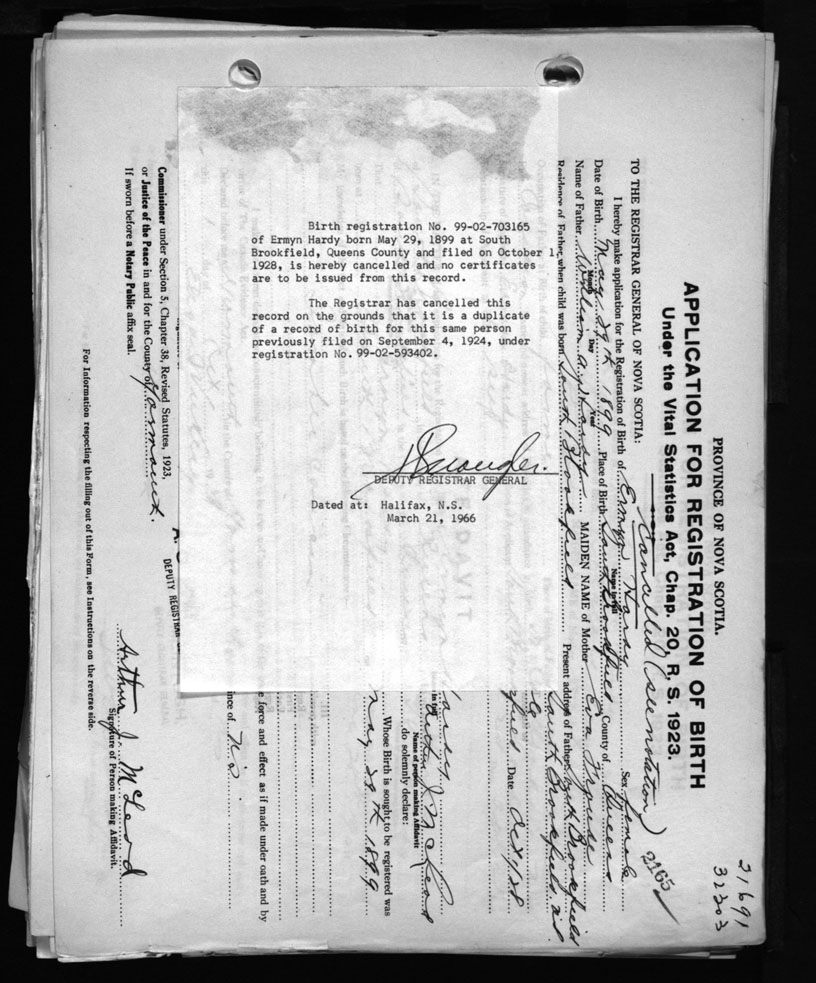 Birth registration No. 99-02-703165
of Ermyn Hardy born May 29, 1899 at South
Brookfield, Queens County and filed on October 1,
1928, is hereby cancelled and no certificates
are to be issued from this record.
The Registrar has cancelled this
record on the grounds that it is a duplicate
of a record of birth for this same person
previously filed on September 4, 1924, under
registration No. 99-02-593402.
DEPUTY REGISTRAR GENERAL
Dated at: Halifax, N.S.
March 21, 1966
21691
32303
2165
PROVINCE OF NOVA SCOTIA.
APPLICATION FOR REGISTRATION OF BIRTH
Under the Vital Statistics Act, Chap. 20, R. S. 1923.
Cancelled (see notation)
TO THE REGISTRAR GENERAL OF NOVA SCOTIA:
I hereby make application for the Registration of Birth of Ermyn Hardy Sex Female
Name in full
Date of Birth May 29th 1899 Place of Birth South Brookfield County of Queens
Month Day Year
Name of Father William Hardy MAIDEN NAME of Mother Eva
Residence of Father, when child was born South Brookfield Present address of Father South Brookfield
South Brookfield
Date Oct 1/28
Arthur J. McLeod
Name of person making Affidavit
do solemnly declare:
Whose Birth is sought to be registered was
May 29th 1899
ince of N.S.
e force and effect as if made under oath and by
DEPUTY REGISTRAR
Commissioner under Section 5, Chapter 38, Revised Statutes, 1923,
or Justice of the Peace in and for the County of Yarmouth.
If sworn before a Notary Public affix seal.
Arthur J. McLeod
Signature of Person making Affidavit.
For Information respecting the filling out of this Form, see Instructions on the reverse side.